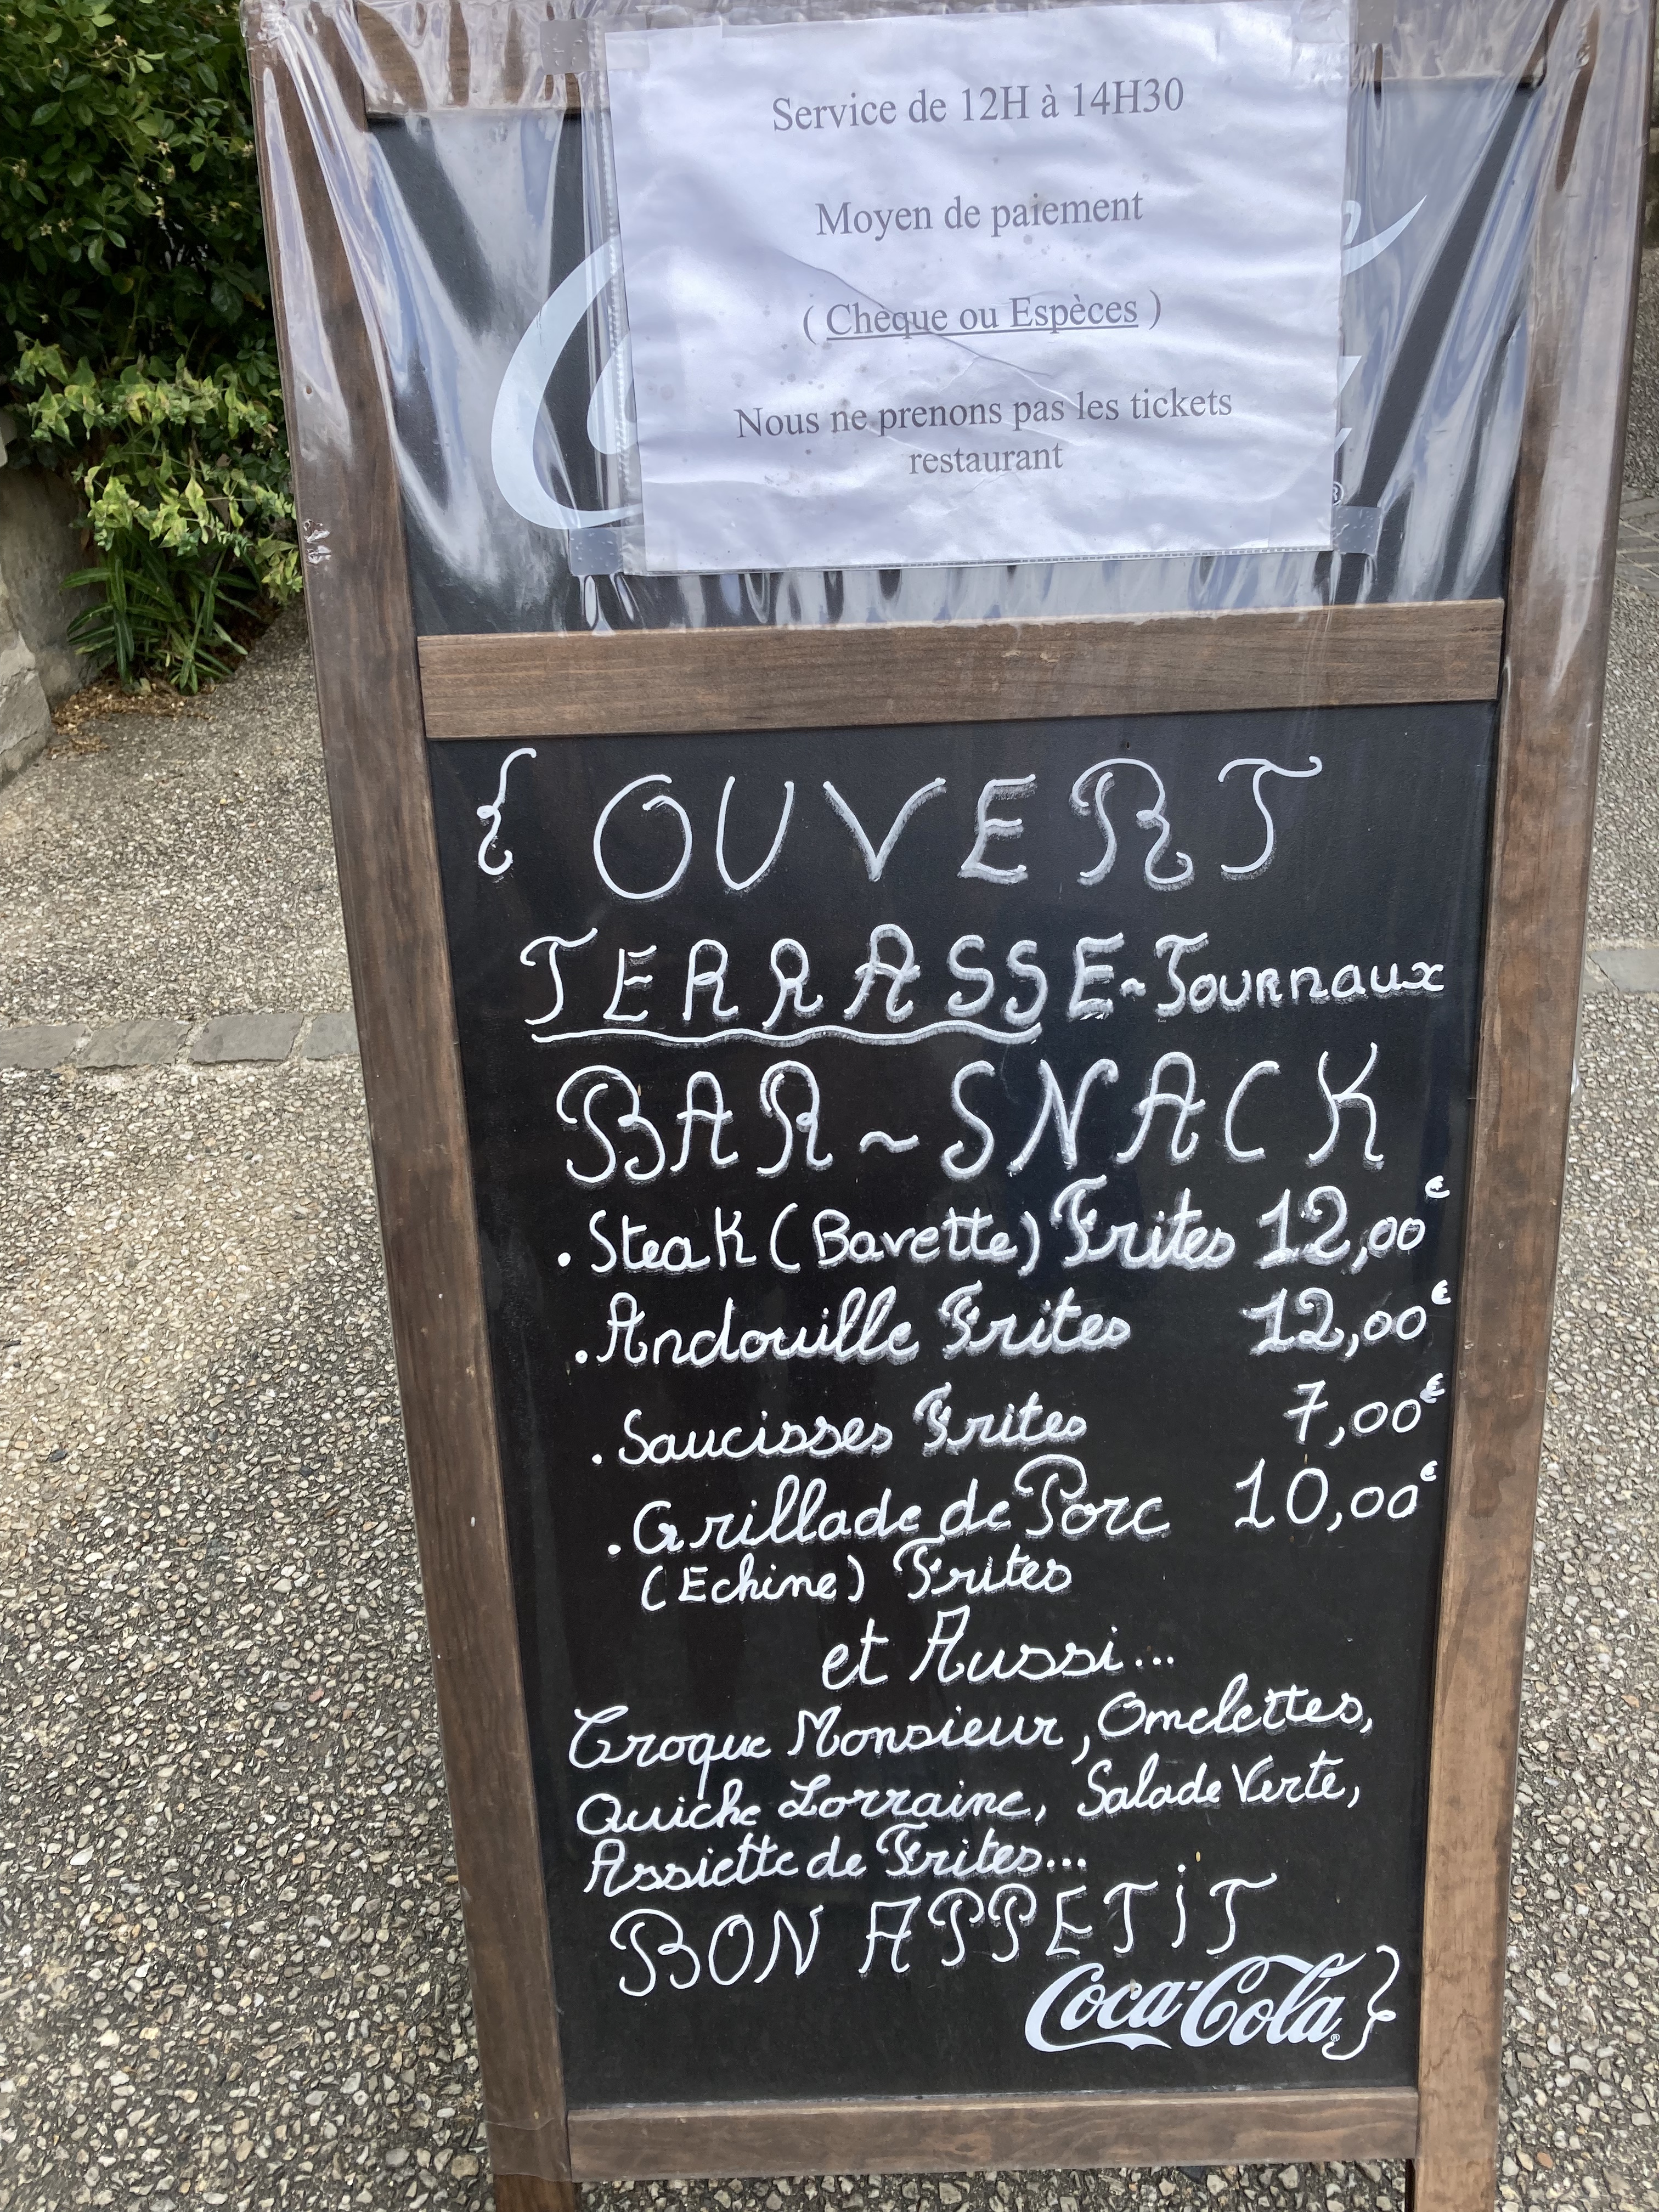 Service de 12H à 14H30
Moyen de paiement
( Chèque ou Espèces )
Nous ne prenons pas les tickets
restaurant
{ OUVERT
TERRASSE~Journaux
BAR~SNACK
. Steak (Bavette) Frites 12,00€
. Andouille Frites 12,00€
. Saucisses Frites 7,00€
. Grillade de Porc 10,00€
(Echine) Frites
et Aussi...
Croque Monsieur, Omelettes,
Quiche Lorraine, Salade Verte,
Assiette de Frites...
BON APPETiT
Coca-Cola® }